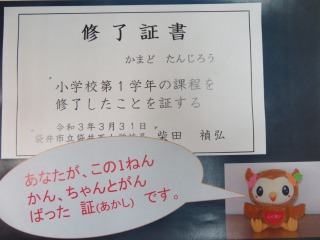 修了証書
かまど　たんじろう
小学校第１学年の課程を
修了したことを証する
令和３年３月３１日
柴田　禎弘
あなたが、この1ねん
かん、ちゃんとがん
ばった　証(あかし)　です。